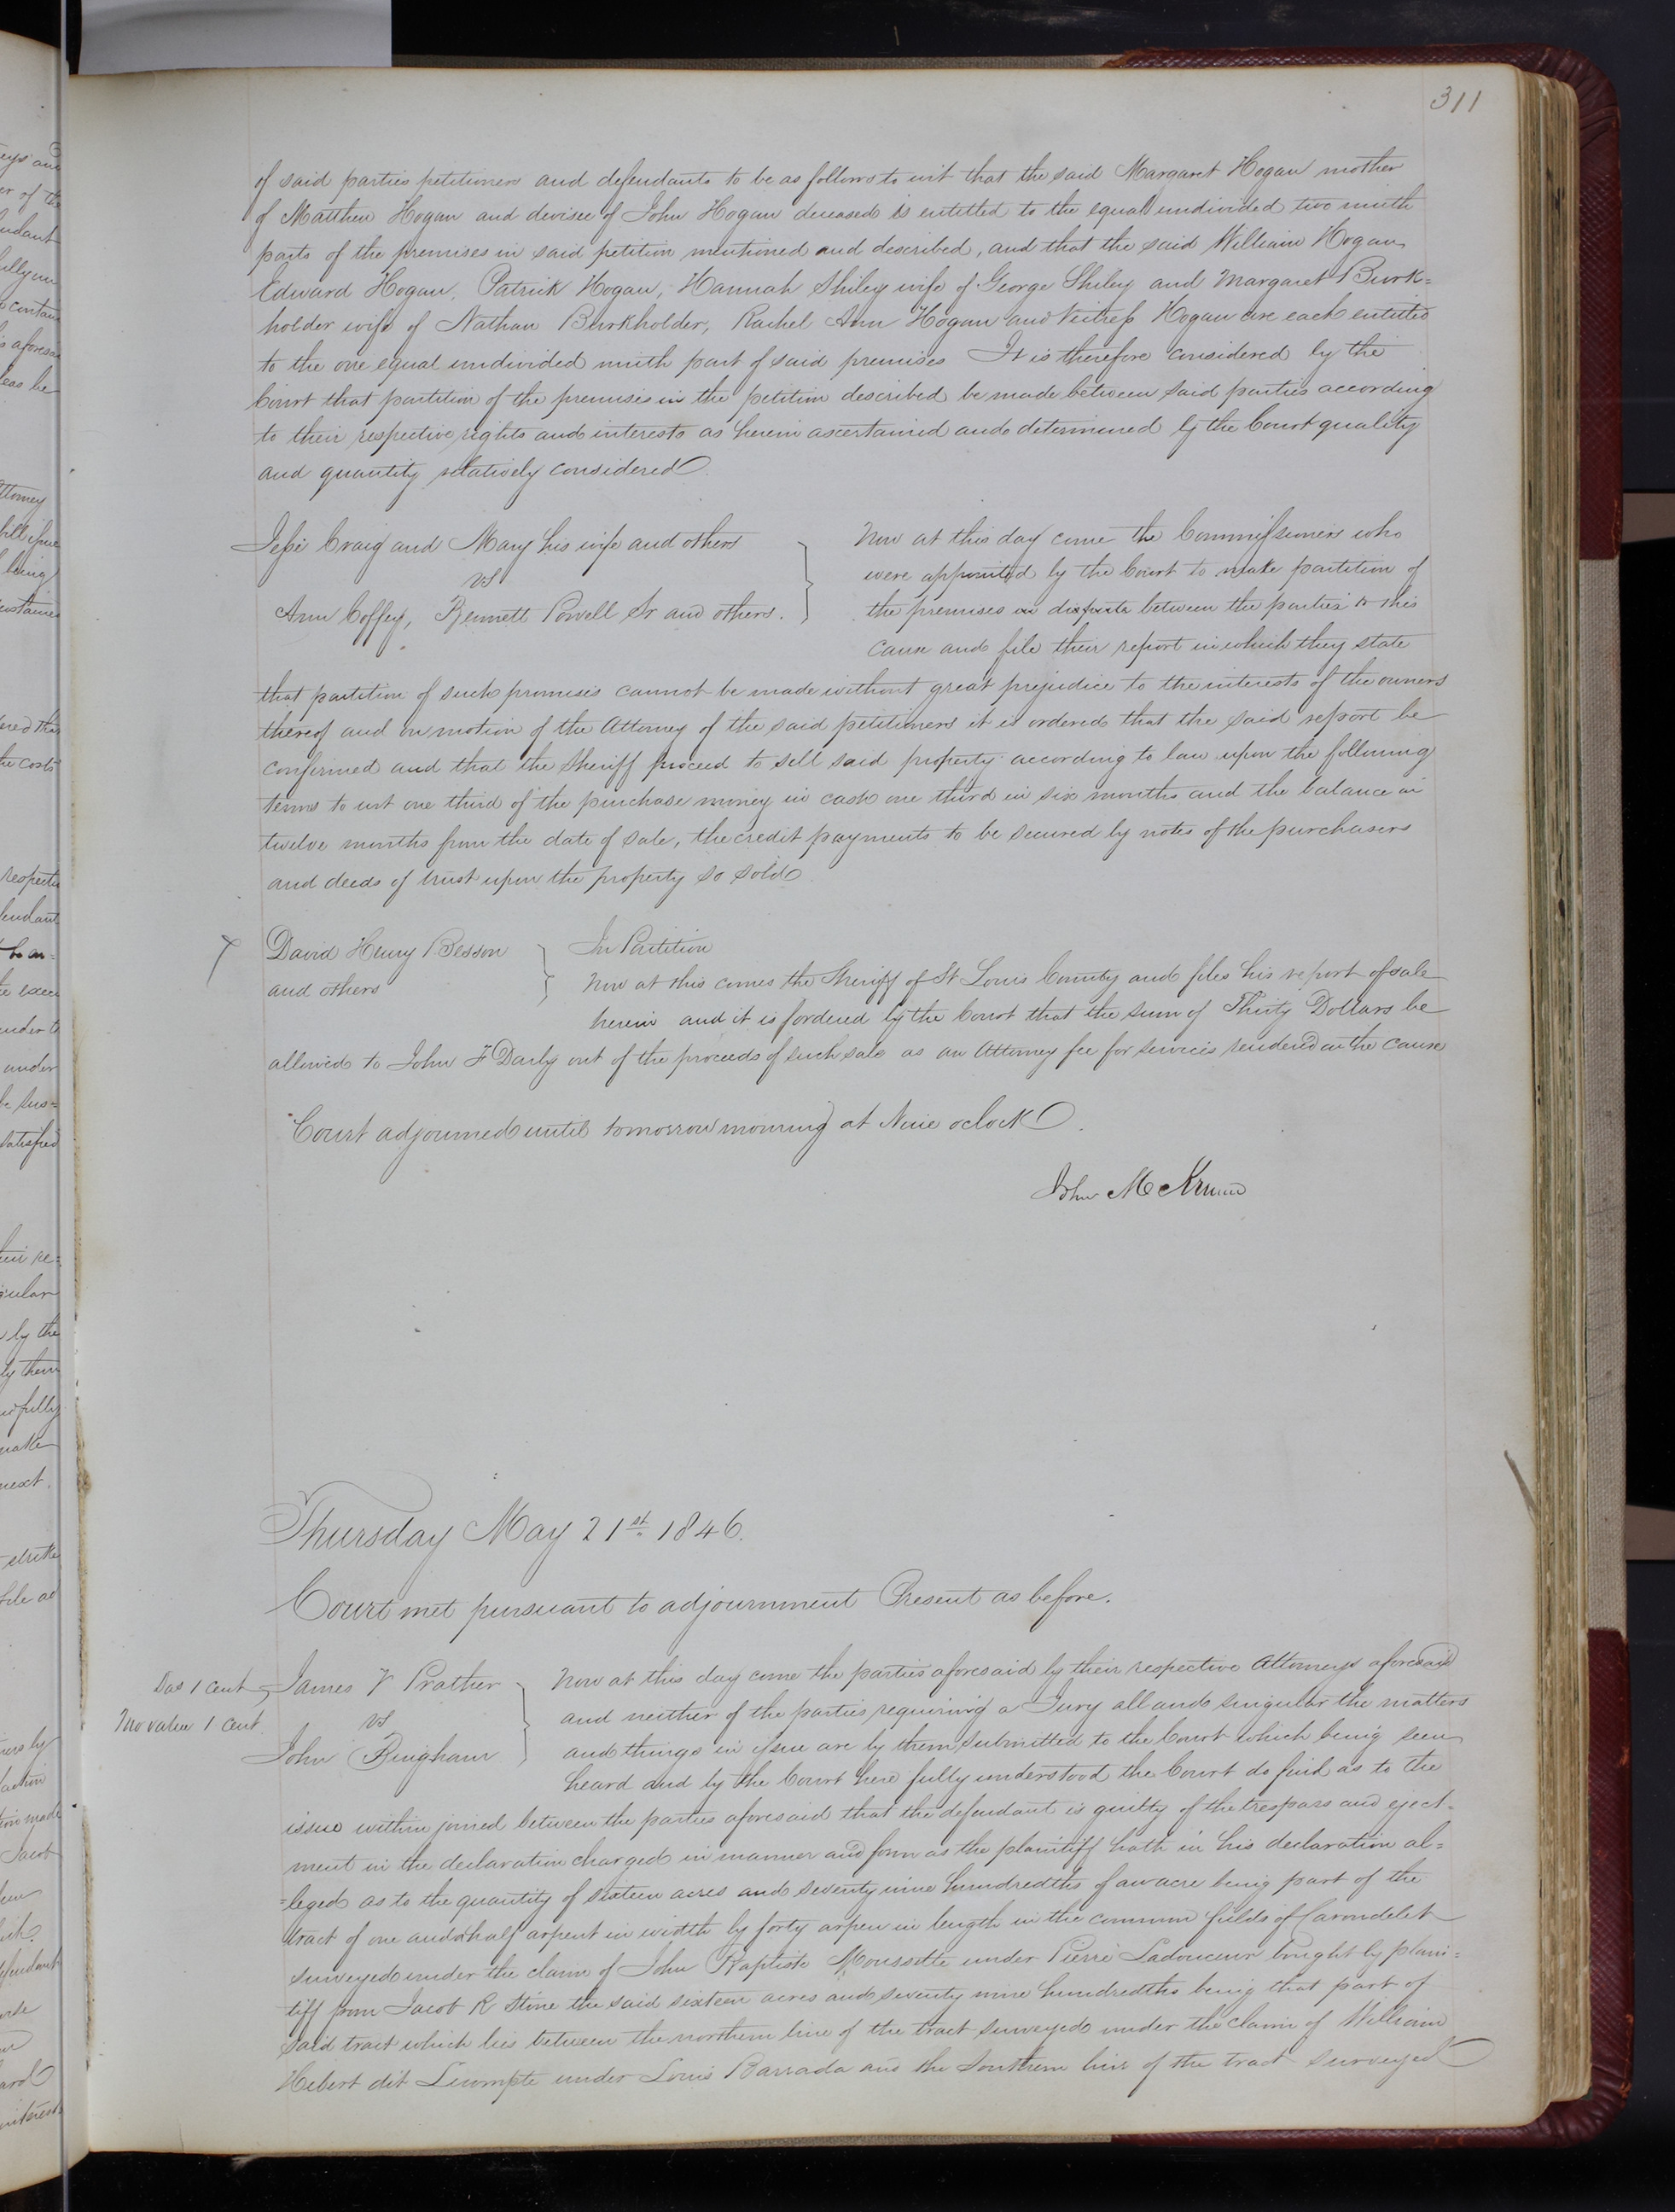 311
of said parties petitioners and defendants to be as follows to wit that the said Margaret Hogan mother
of Matthew Hogan and devisee of John Hogan deceased is entitled to the equal undivided two ninth
parts of the premises in said petition mentioned and described, and that the said William Hogan
Edward Hogan, Patrick Hogan, Hannah Shiley wife of George Shiley and Margaret Burk=
holder wife of Nathan Burkholder, Rachel Ann Hogan and Hogan are each entitled
to the one equal undivided ninth part of said premises It is therefore considered by the
Court that partition of the premises in the petition described be made between said parties according
to their respective rights and interests as herein ascertained and determined by the Court quality
and quantity relatively considered
Jesse Craig and Mary his wife and others
vs
Ann Coffey, Bennett Powell Sr and others.
Now at this day come the Commissioners who
were appointed by the Court to make partition of
the premises in dispute between the parties to this
cause and file their report in which they state
that partition of such premises cannot be made without great prejudice to the interests of the owners
thereof and on motion of the Attorney of the said petitioners it is ordered that the said report be
confirmed and that the Sheriff proceed to sell said property according to law upon the following
terms to wit one third of the purchase money in cash one third in six months and the balance in
twelve months from the date of sale, the credit payments to be secured by notes of the purchasers
and deeds of trust upon the property so sold
David Henry Besson
and others
In Partition
Now at this comes the Sheriff of St Louis County and files his report of sale
herein and it is fordered by the Court that the sum of Thirty Dollars be
allowed to John F Darby out of the proceeds of such sale as an Attorney fee for services rendered in the cause
Court adjourned until tomorrow morning at Nine oclock.
John M Krum
Thursday May 21st 1846.
Court met pursuant to adjournment Present as before.
Das 1 cent
Mo value 1 cent.
James V Prather
vs
John Bingham
Now at this day come the parties aforesaid by their respective Attorneys aforesaid
and neither of the parties requiring a Jury all and singular the matters
and things in issue are by them submitted to the Court which being seen
heard and by the Court here fully understood the Court do find as to the
issue within joined between the parties aforesaid that the defendant is guilty of the trespass and eject-
ment in the declaration charged in manner and form as the plaintiff hath in his declaration al=
=leged as to the quantity of sixteen acres and seventy nine hundredths of an acre being part of the
tract of one and half arpent in width by forty arpen in length in the common fields of Carondelet
surveyed under the claim of John Baptiste under Pierre Ladouceur bought by plain=
tiff from Jacob R Stine the said sixteen acres and seventy nine hundredths being that part of
said tract which lies between the northern line of the tract surveyed under the claim of William
Hebert dit Lecompte under Louis Barrada and the Southern line of the tract surveyed